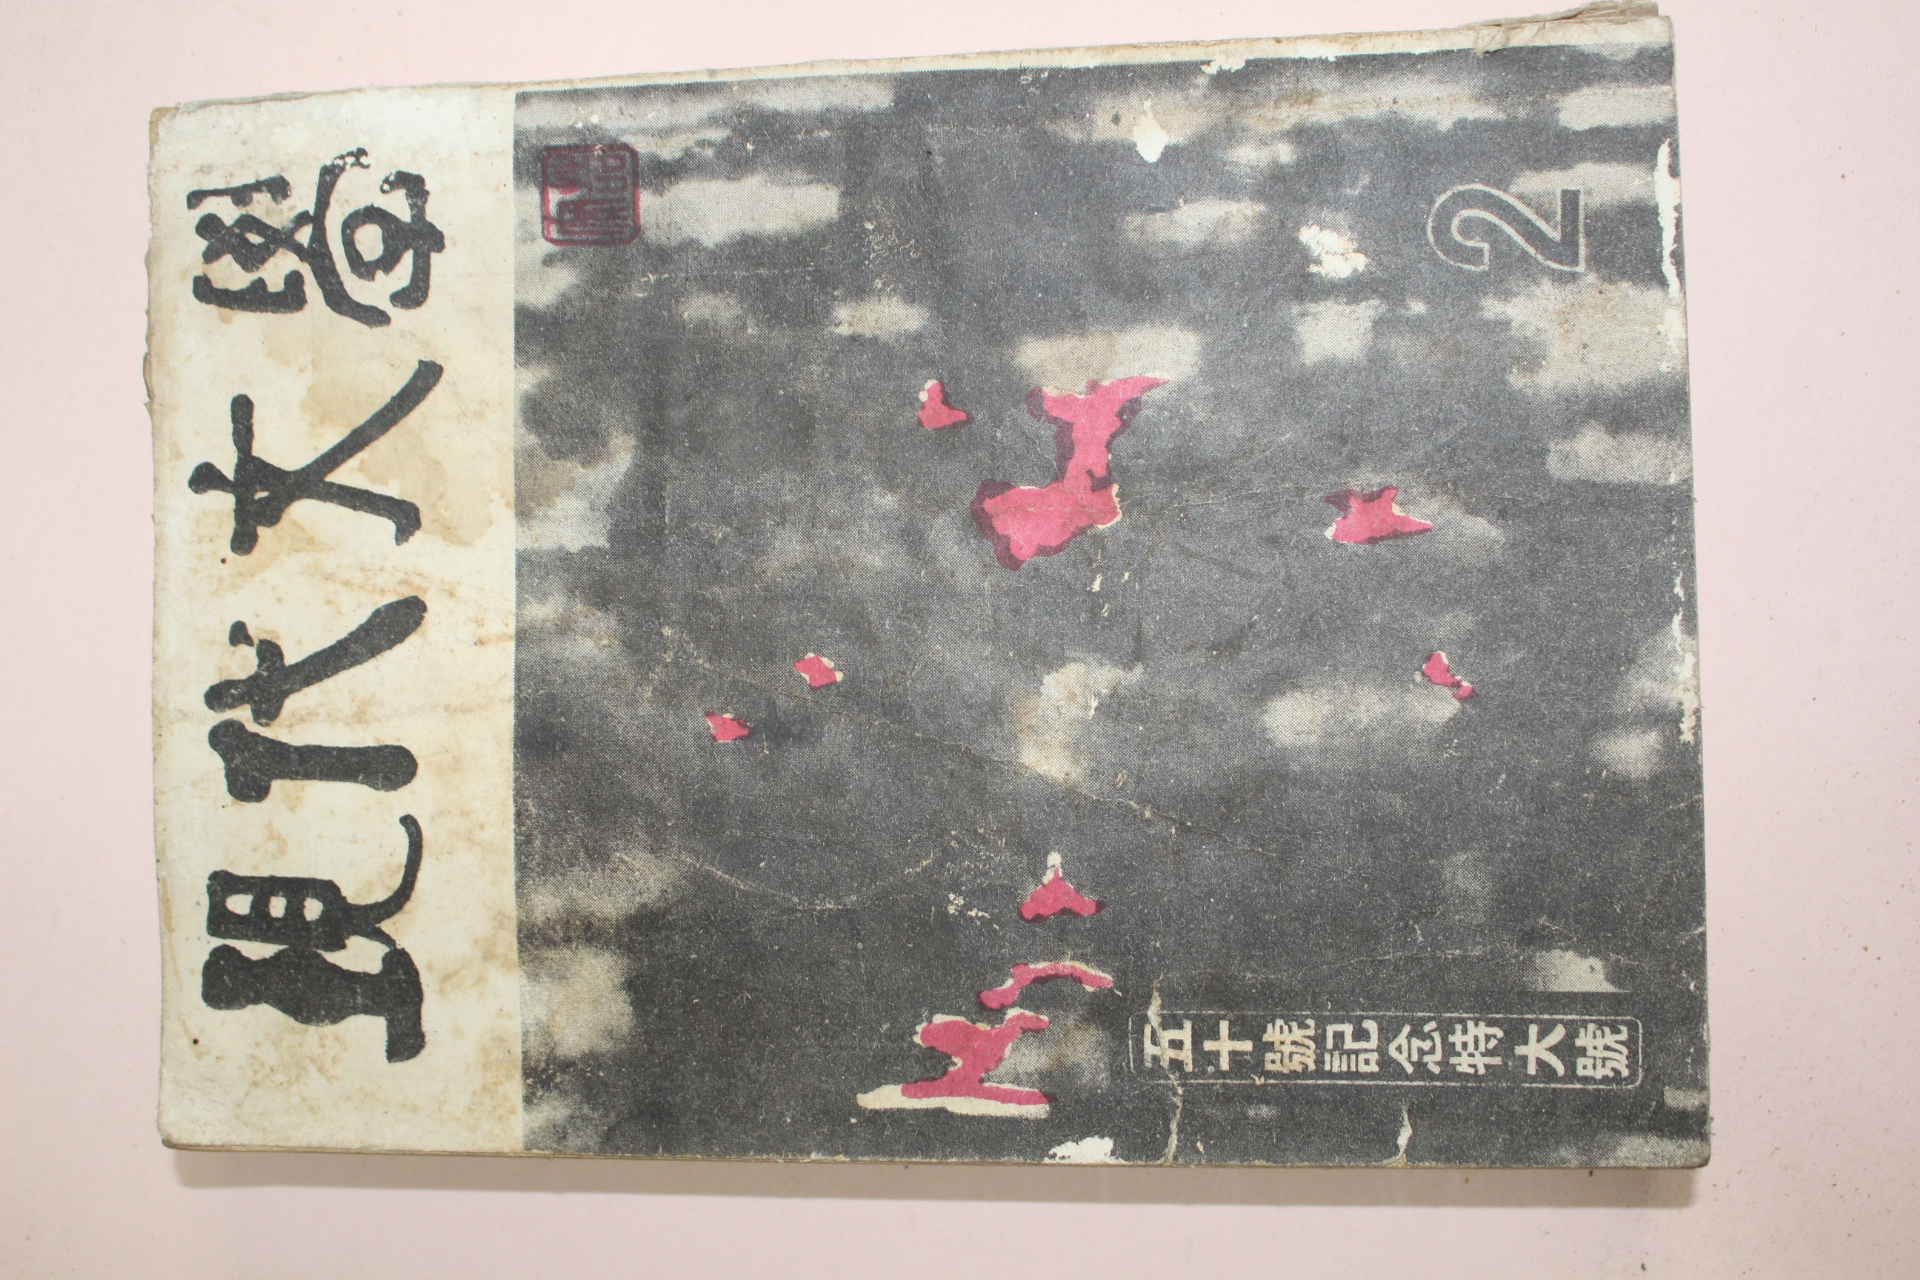 現代文學
2
五十號記念特大號